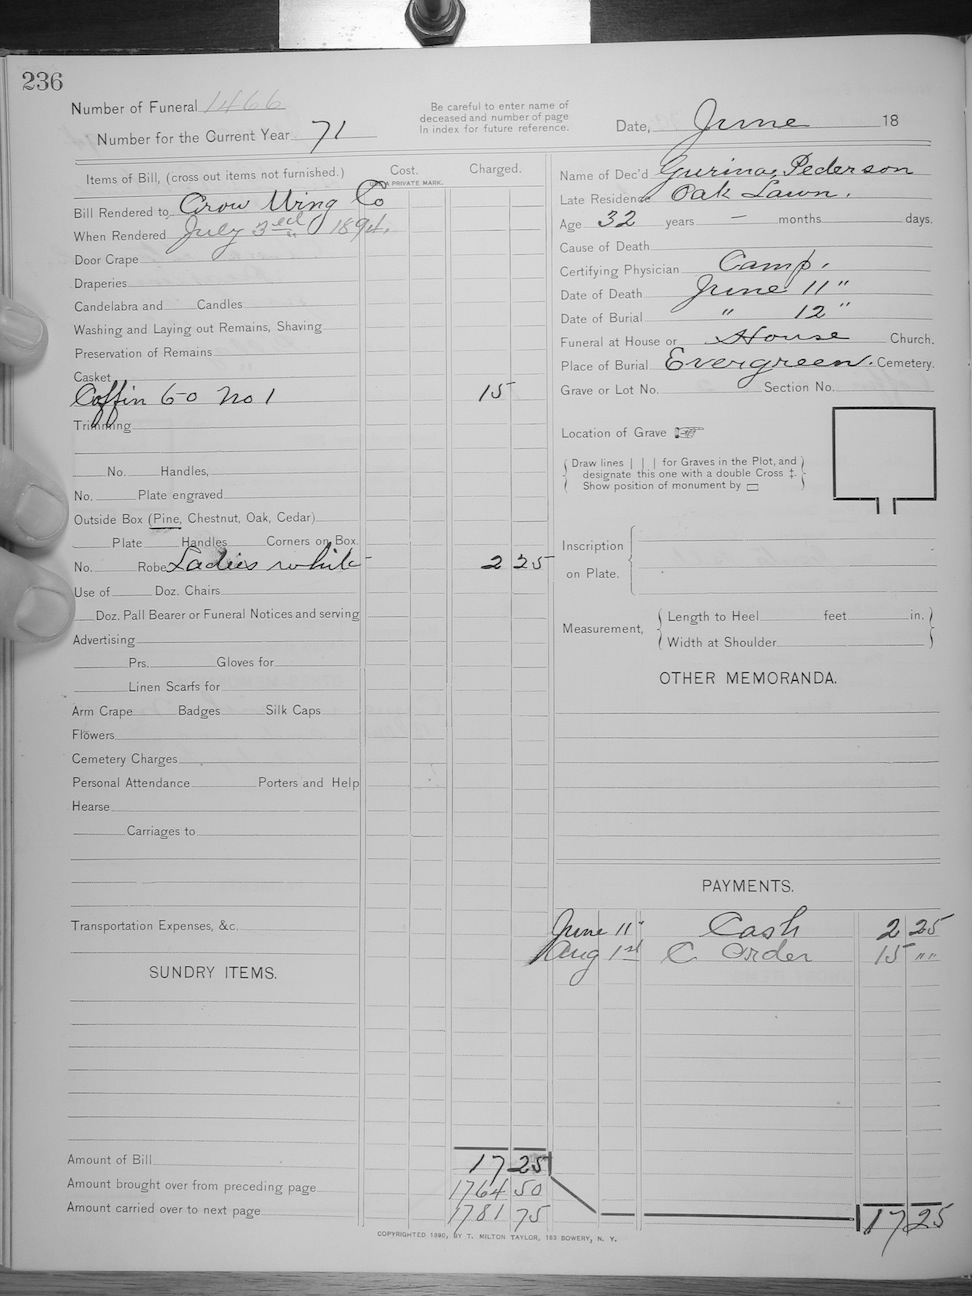 236
Number of Funeral 1466
Number for the Current Year 71
Be careful to enter name of
deceased and number of page
In index for future reference.
Date, June 18
Items of Bill, (cross out items not furnished.)
Cost.
PRIVATE MARK.
Charged.
Bill Rendered to Crow Wing Co
When Rendered July 3rd 1894.
Door Crape
Draperies
Candelabra and Candles
Washing and Laying out Remains, Shaving
Preservation of Remains
Casket
Coffin 6-0 No 1 15
Trimming
No. Handles,
No. Plate engraved
Outside Box (Pine, Chestnut, Oak, Cedar)
Plate Handles Corners on Box.
No. Robe Ladies white 2 25
Use of Doz. Chairs
Doz. Pall Bearer or Funeral Notices and serving
Advertising
Prs. Gloves for
Linen Scarfs for
Arm Crape Badges Silk Caps
Flowers
Cemetery Charges
Personal Attendance Porters and Help
Hearse
Carriages to
Transportation Expenses, &c.
SUNDRY ITEMS.
Amount of Bill 17 25
Amount brought over from preceding page 1764 50
Amount carried over to next page 1781 75
Name of Dec'd Gurina Pederson
Late Residence Oak Lawn.
Age 32 years — months days.
Cause of Death
Certifying Physician Camp.
Date of Death June 11 "
Date of Burial " 12 "
Funeral at House or House Church.
Place of Burial Evergreen. Cemetery.
Grave or Lot No. Section No.
Location of Grave
Draw lines | | | for Graves in the Plot, and
designate this one with a double Cross ‡.
Show position of monument by
Inscription
on Plate.
Measurement, Length to Heel feet in.
Width at Shoulder
OTHER MEMORANDA.
PAYMENTS.
June 11" Cash 2 25
Aug 1st C. Order 15 " "
17 25
COPYRIGHTED 1890, BY T. MILTON TAYLOR, 163 BOWERY, N. Y.